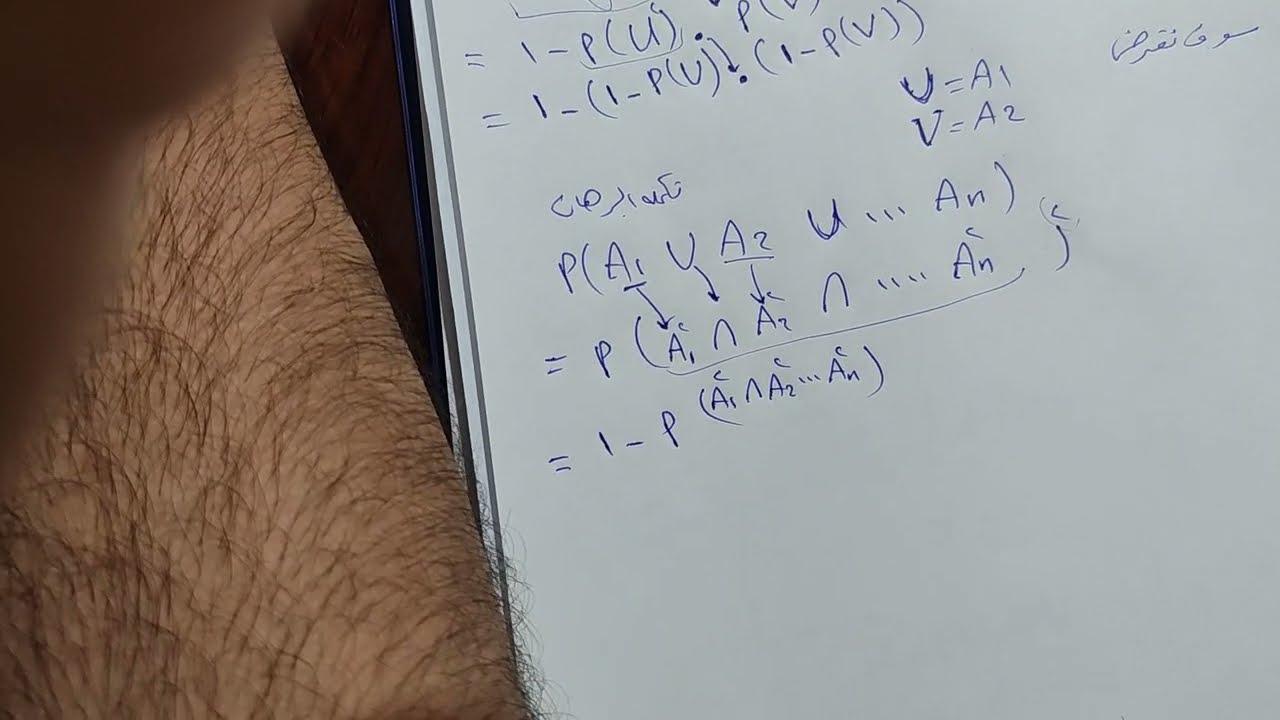 = 1 - P(Uᶜ) . P(V
= 1 - (1 - P(U)) . (1 - P(V))
سوف نفرض
U = A1
V = A2
تكملة البرهان
P(A1 ∪ A2 ∪ ... An)
= P (A1ᶜ ∩ A2ᶜ ∩ .... Anᶜ)ᶜ
= 1 - P (A1ᶜ ∩ A2ᶜ ... Anᶜ)